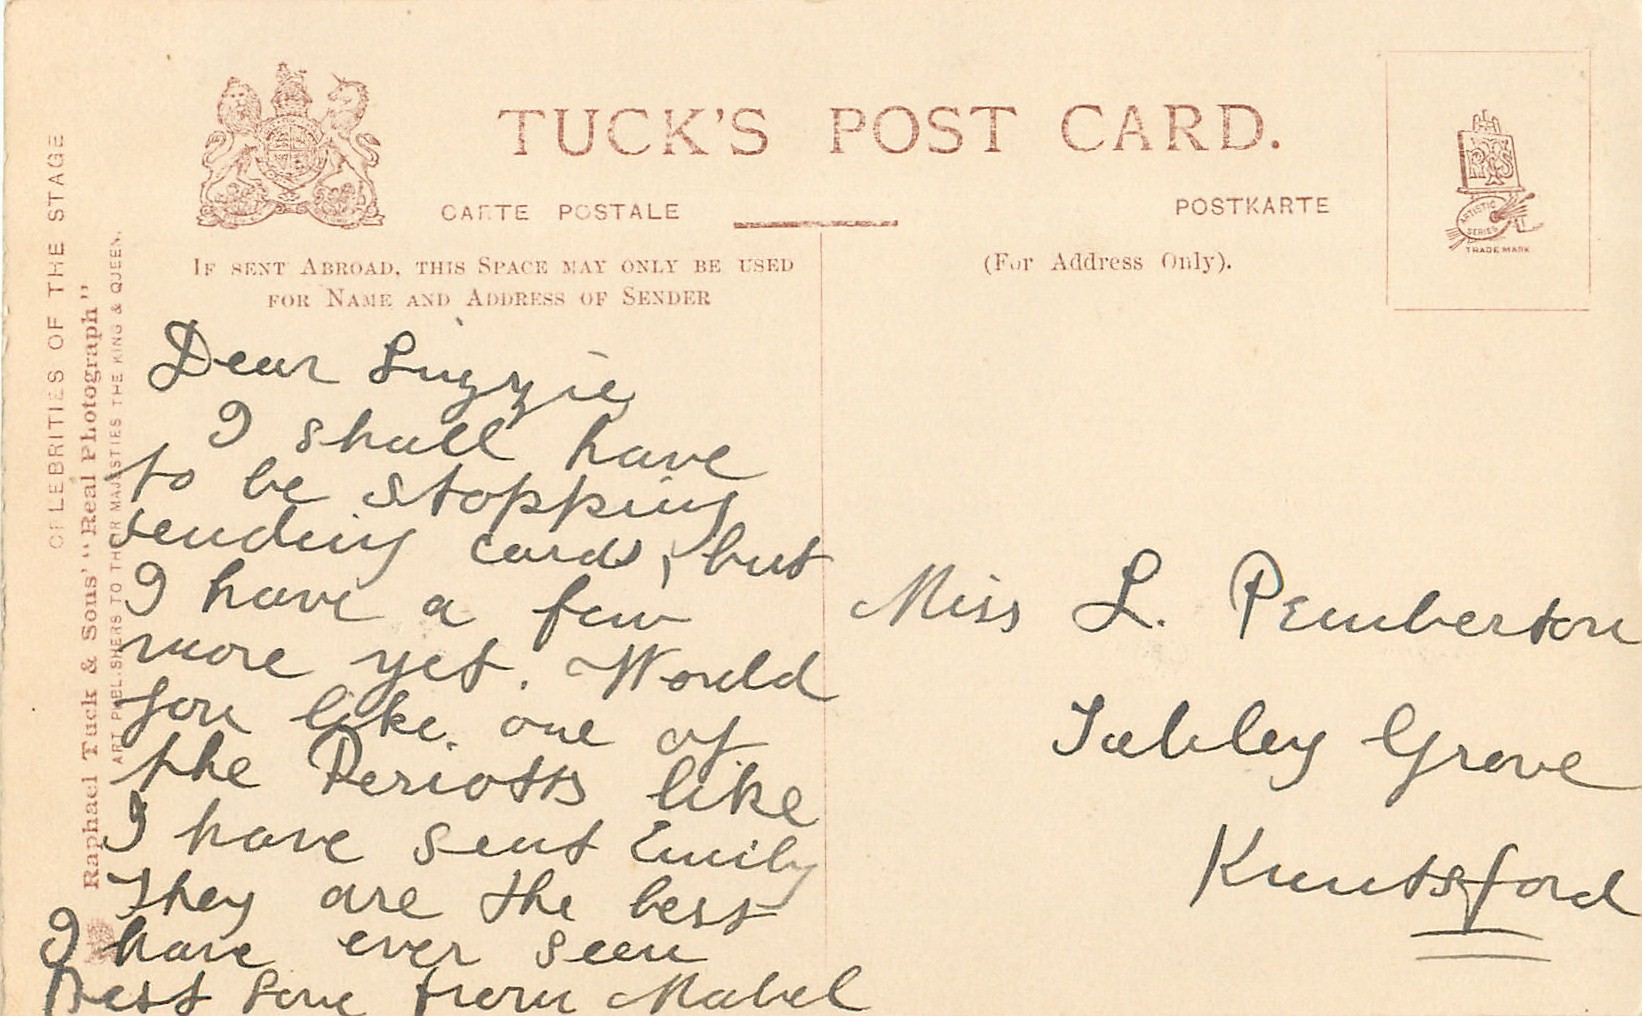 TUCK'S POST CARD.
CARTE POSTALE
POSTKARTE
IF SENT ABROAD, THIS SPACE MAY ONLY BE USED
FOR NAME AND ADDRESS OF SENDER
(For Address Only).
ARTISTIC
SERIES
TRADE MARK
CELEBRITIES OF THE STAGE
Raphael Tuck & Sons' "Real Photograph"
ART PUBLISHERS TO THEIR MAJESTIES THE KING & QUEEN.
Dear Lizzie
I shall have
to be stopping
sending cards, but
I have a few
more yet. Would
you like. one of
the Periotts like
I have sent Emily
They are the best
I have ever seen
Best love from Mabel
Miss L. Pemberton
Tabley Grove
Knutsford